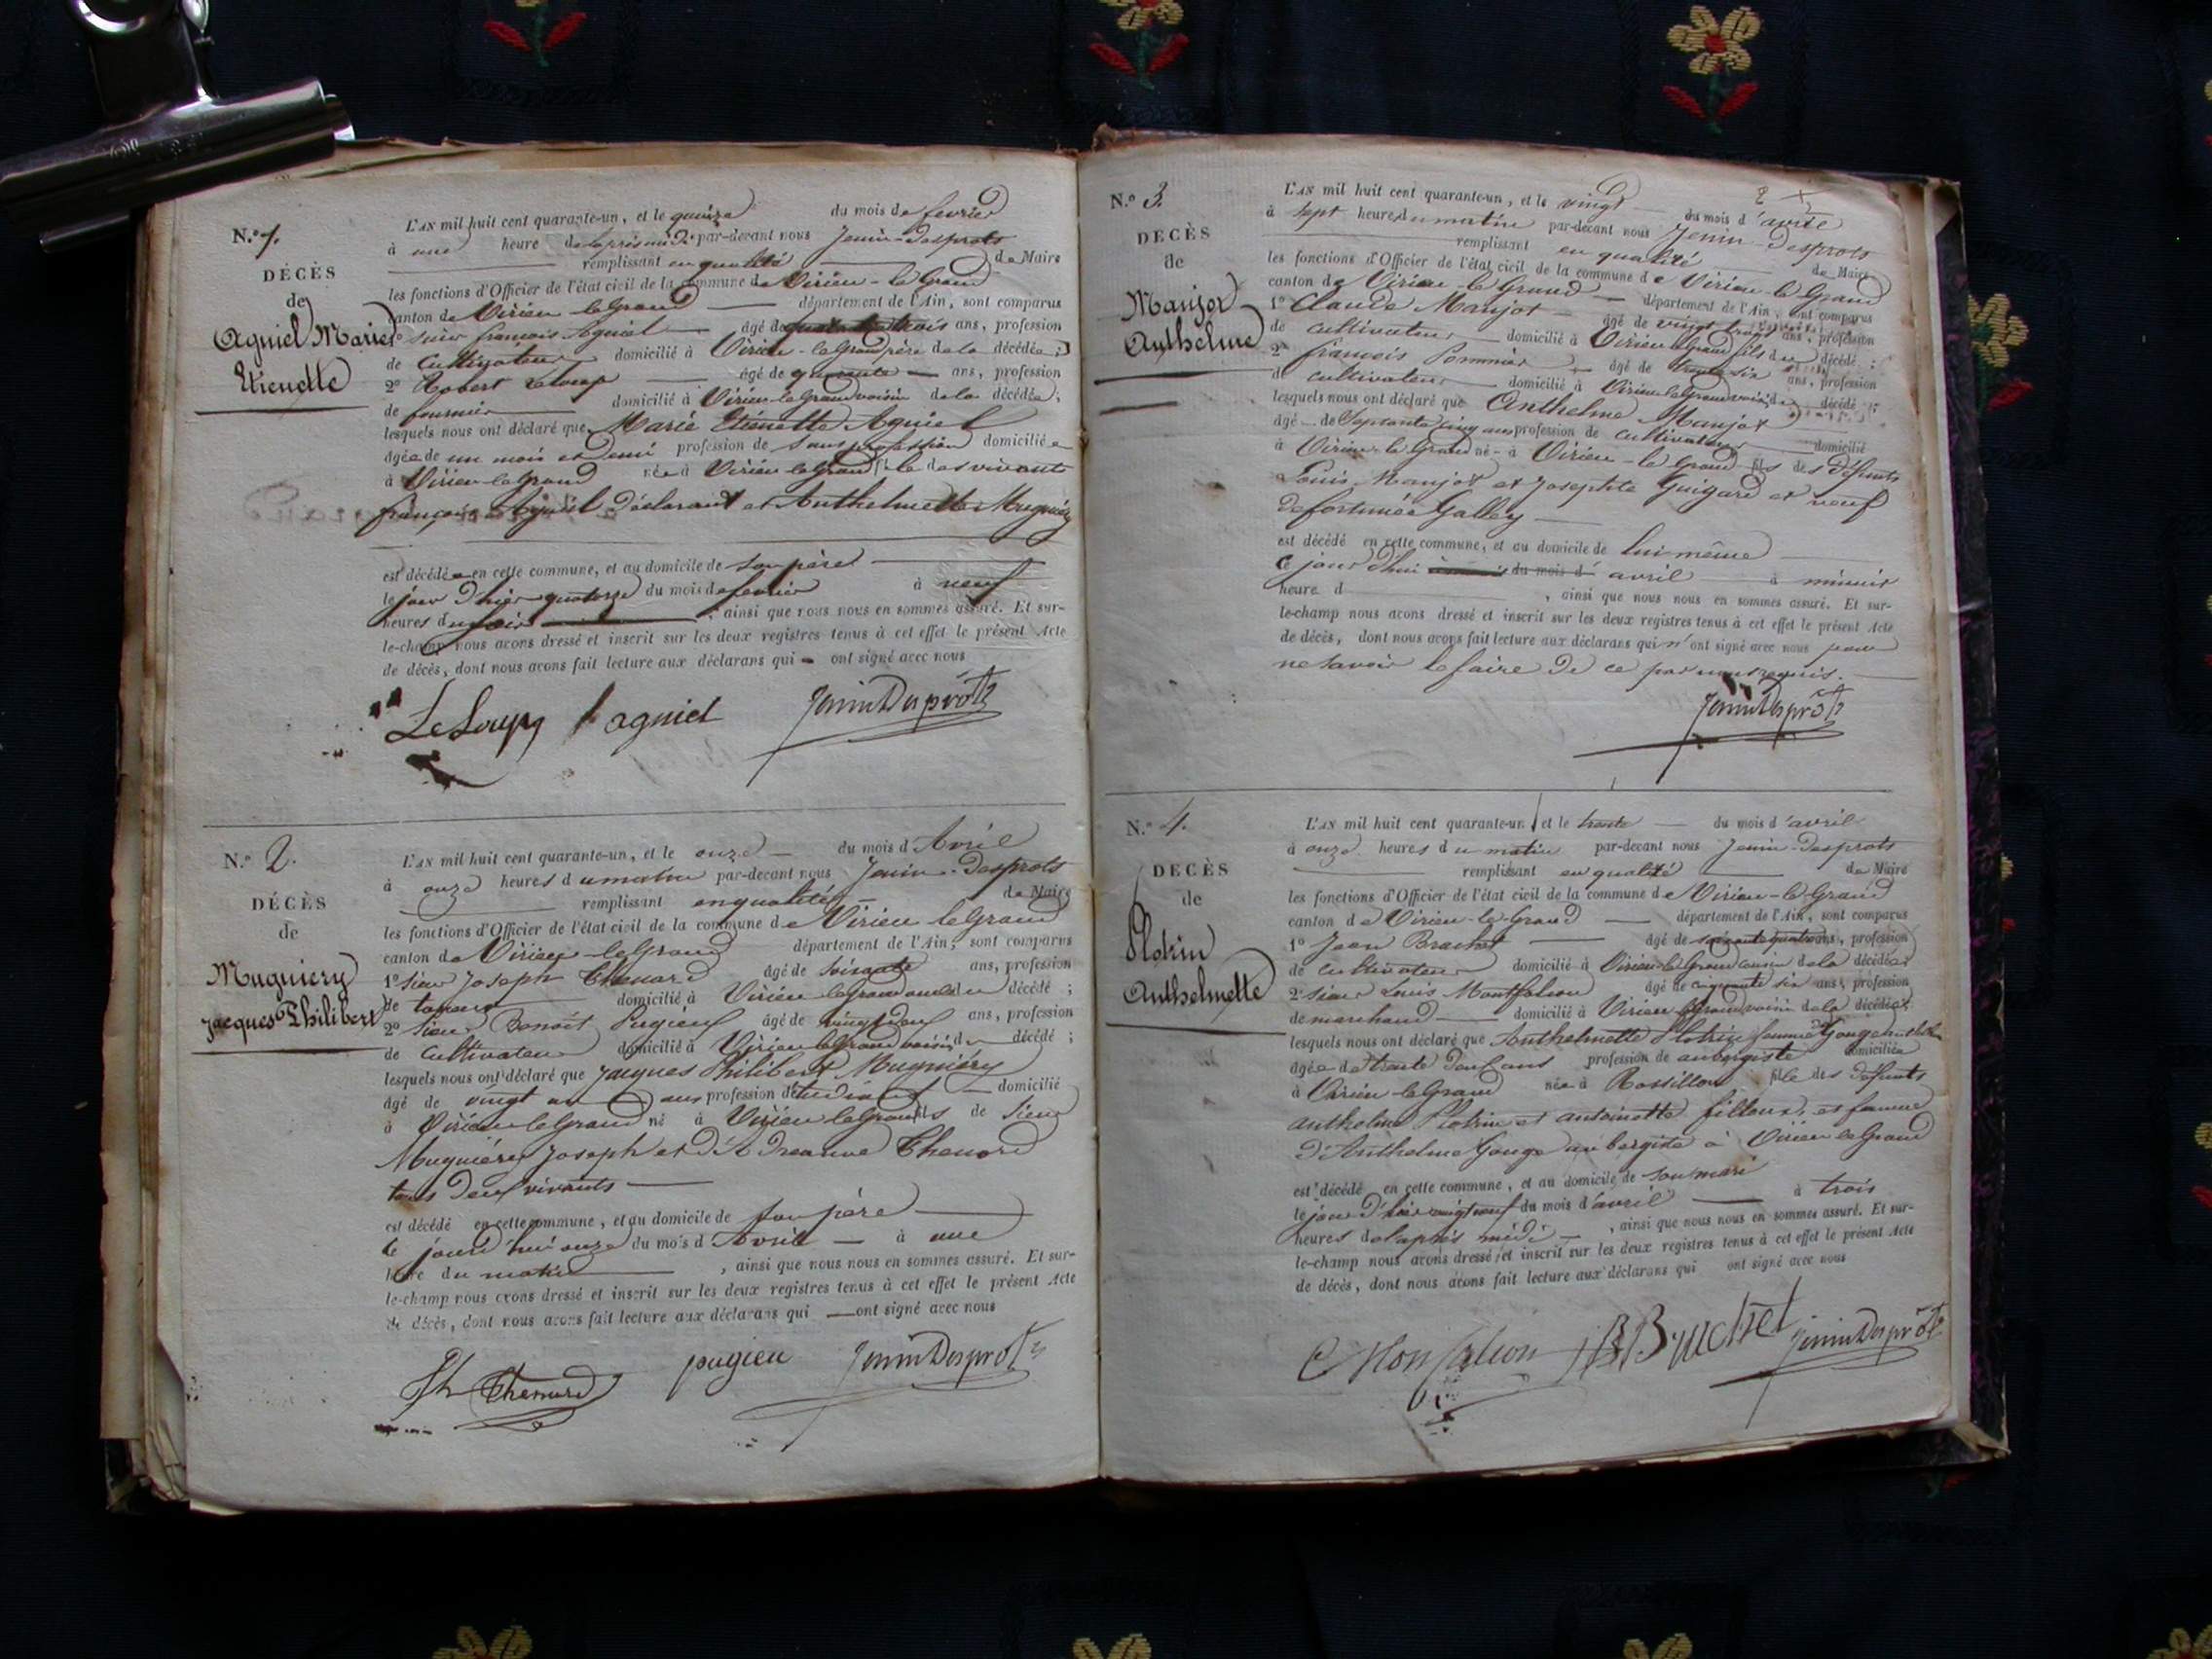 N.° 1.
DÉCÈS
de
Agniel Marie
Etienette
L'AN mil huit cent quarante-un, et le quinze du mois de fevrier
à une heure de laprès midi par-devant nous Jenin-Desprots
remplissant en qualité de Maire
les fonctions d'Officier de l'état civil de la commune de Virieu-le Grand
canton de Virieu le Grand département de l'Ain, sont comparus
1° sieur françois Agniel âgé de quarante trois ans, profession
de Cultivateur domicilié à Virieu-le Grand père de la décédée;
2° Robert Leloup âgé de quarante ans, profession
de fournier domicilié à Virieu-le Grand voisin de la décédée;
lesquels nous ont déclaré que Marie Etienette Agniel
âgée de un mois et demi profession de sans profession domiciliée
à Virieu-le Grand née à Virieu le Grand fille des vivants
françois Agniel déclarant et Anthelmette Muguiéry
est décédée en cette commune, et au domicile de son père
le jour d'hier quatorze du mois de fevrier à neuf
heures du soir, ainsi que nous nous en sommes assuré. Et sur-
le-champ nous avons dressé et inscrit sur les deux registres tenus à cet effet le présent Acte
de décès, dont nous avons fait lecture aux déclarans qui ont signé avec nous
LeLoup agniel JeninDesprots
N.° 2.
DÉCÈS
de
Muguiery
Jacques Philibert
L'AN mil huit cent quarante-un, et le onze du mois d'Avril
à onze heures du matin par-devant nous Jenin-Desprots
remplissant en qualité de Maire
les fonctions d'Officier de l'état civil de la commune de Virieu le Grand
canton de Virieu le Grand département de l'Ain, sont comparus
1° sieur Joseph Thenard âgé de soixante ans, profession
de domicilié à Virieu le Grand oncle du décédé;
2° sieur Benoît Pugieu âgé de vingt neuf ans, profession
de Cultivateur domicilié à Virieu le Grand voisin du décédé;
lesquels nous ont déclaré que Jacques Philibert Muguiéry
âgé de vingt un ans profession d'étudiant domicilié
à Virieu le Grand né à Virieu le Grand fils de sieur
Muguiéry Joseph et d'Adreanne Thenard
tous deux vivants
est décédé en cette commune, et au domicile de son père
le jourd'hui onze du mois d'Avril à une
heure du matin, ainsi que nous nous en sommes assuré. Et sur-
le-champ nous avons dressé et inscrit sur les deux registres tenus à cet effet le présent Acte
de décès, dont nous avons fait lecture aux déclarans qui ont signé avec nous
Jh Thenard pugieu JeninDesprots
2
N.° 3.
DÉCÈS
de
Manjot
Anthelme
L'AN mil huit cent quarante-un, et le vingt du mois d'avril
à sept heures du matin par-devant nous Jenin-Desprots
remplissant en qualité de Maire
les fonctions d'Officier de l'état civil de la commune de Virieu-le Grand
canton de Virieu-le Grand département de l'Ain, sont comparus
1° Claude Manjot âgé de vingt trois ans, profession
de cultivateur domicilié à Virieu le Grand fils du décédé;
2° françois Pommier âgé de trente six ans, profession
de cultivateur domicilié à Virieu le Grand voisin du décédé;
lesquels nous ont déclaré que Anthelme Manjot
âgé de Septante cinq ans profession de cultivateur domicilié
à Virieu le Grand né à Virieu-le Grand fils des défunts
Louis Manjot et Josephte Guigard et veuf
de fortunée Galley
est décédé en cette commune, et au domicile de lui-même
ce jour d'hui du mois d'avril à minuit
heure d , ainsi que nous nous en sommes assuré. Et sur-
le-champ nous avons dressé et inscrit sur les deux registres tenus à cet effet le présent Acte
de décès, dont nous avons fait lecture aux déclarans qui n'ont signé avec nous pour
ne savoir le faire de ce par nous requis.
JeninDesprots
N.° 4.
DÉCÈS
de
Plotrin
Anthelmette
L'AN mil huit cent quarante-un, et le trente du mois d'avril
à onze heures du matin par-devant nous Jenin-Desprots
remplissant en qualité de Maire
les fonctions d'Officier de l'état civil de la commune de Virieu-le-Grand
canton de Virieu-le-Grand département de l'Ain, sont comparus
1° Jean Brachet âgé de soixante quatre ans, profession
de cultivateur domicilié à Virieu-le Grand cousin de la décédée;
2° sieur Louis Montfalcon âgé de cinquante six ans, profession
de marchand domicilié à Virieu le Grand voisin de la décédée;
lesquels nous ont déclaré que Anthelmette Plotrin femme Gouge
âgée de trente deux ans profession de aubergiste domiciliée
à Virieu-le Grand née à Rossillon fille des défunts
anthelme Plotrin et antoinette filloux, et femme
d'Anthelme Gouge aubergiste à Virieu le Grand
est décédé en cette commune, et au domicile de son mari
le jour d'hier vingt neuf du mois d'avril à trois
heures de l'après midi, ainsi que nous nous en sommes assuré. Et sur-
le-champ nous avons dressé et inscrit sur les deux registres tenus à cet effet le présent Acte
de décès, dont nous avons fait lecture aux déclarans qui ont signé avec nous
Monfalcon Brachet JeninDesprots